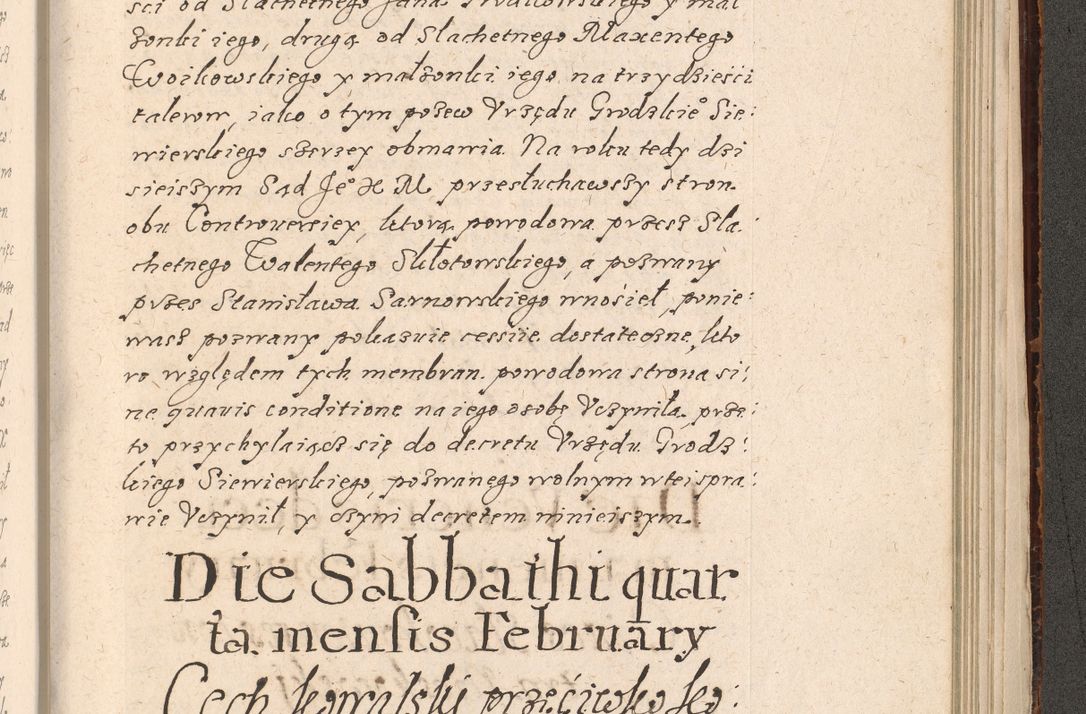 ści od Slachetnego Jana Trvałkowskiego y mał
żonki iego, drugą od Slachetnego Maxentego
Woikowskiego y małżonki iego, na trzydzieści
talerow, iako o tym pozew Vrzędu Grodzkie° Sie:
wierskiego szerzey obmawia. Na roku tedy dzi
sieiszym Sąd Je° X M przesłuchawszy stron
obu Controuersiey, ktorą powodowa przess Sla:
chetnego Walentego Skłotowskiego, a pozwany
przes Stanisława Sarnowskiego wnosieł, ponie:
wasz pozwany pokazuie cessiie dostateczne, kto
ro względem tych membran powodowa strona si:
ne quauis conditione na iego osobę Vczyniła, prze:
to przychylaiącz się do decretu Vrzędu Grodz:
kiego Siewierskiego, pozwanego wolnym w tei spra:
wie Vczynił, y czyni decretem ninieiszym.
Die Sabbathi quar
ta mensis February
Cech kowalski przeciwko ko: